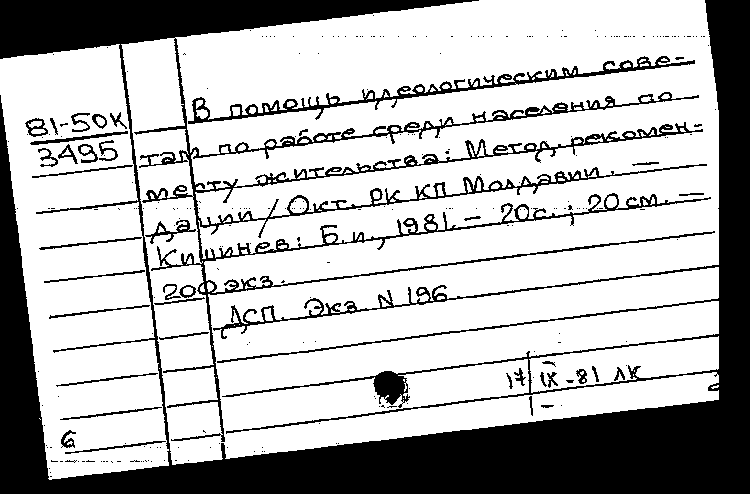 81-50к
3495
В помощь идеологическим сове-
там по работе среди населения по
месту жительства: Метод. рекомен-
дации / Окт. РК КП Молдавии. —
Кишинев: Б.и., 1981. — 20 с.; 20 см. —
200 экз.
ДСП. Экз. N 196.
17 IX - 81 ЛК
6